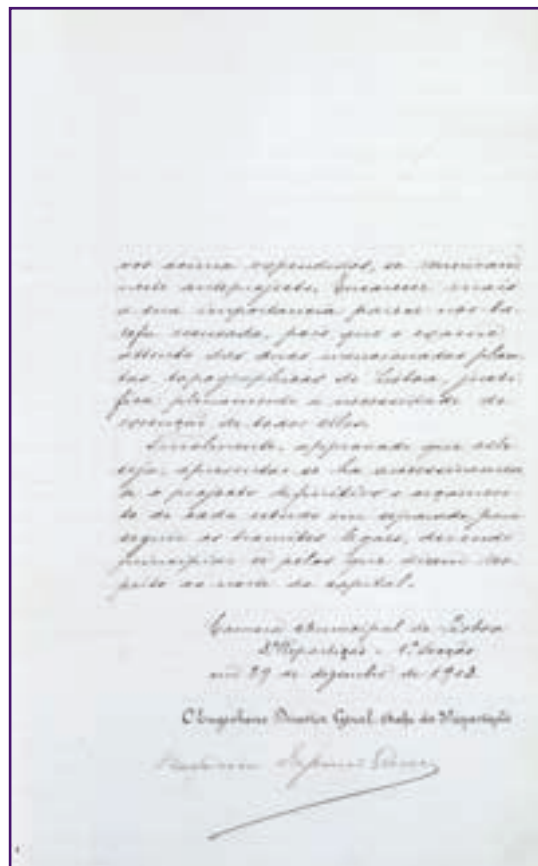 vos acima expendidos, se
neste anteprojecto. Encarecer mais
a sua importancia parece nos ta-
refa escusada, pois que o exame
attento das duas mencionadas plan-
tas topographicas de Lisboa, justi-
fica plenamente a necessidade de
execução de todos elles.
Finalmente, approvado que este
seja, apresentar se ha
o projecto definitivo e orçamen-
to de cada estudo em separado para
seguir os tramites legaes, devendo
principiar se pelos que dizem res-
peito ao norte da capital.
Camara Municipal de Lisboa
3ª Repartição - 1ª Secção
em 29 de dezembro de 1903
O Engenheiro Director Geral, chefe da Repartição